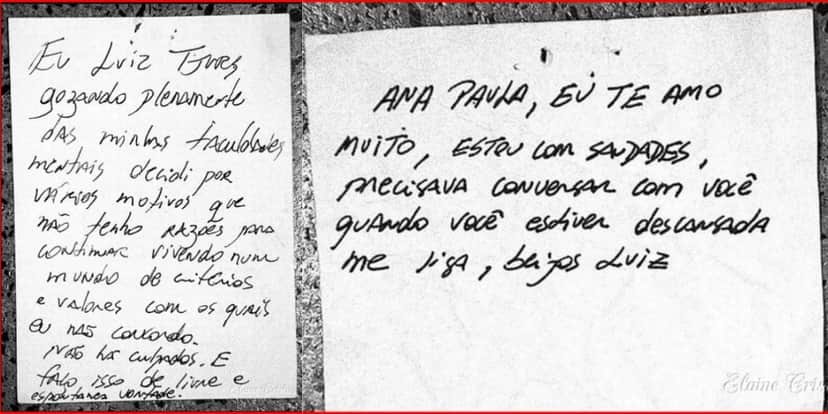 Eu Luiz Tjures
gozando plenamente
das minhas faculdades
mentais decidi por
vários motivos que
não tenho razões para
continuar vivendo num
mundo de critérios
e valores com os quais
eu não concordo.
Não há culpados. E
faço isso de livre e
espontanea vontade.
ANA PAULA, EU TE AMO
MUITO, ESTOU COM SAUDADES,
precisava conversar com você
quando você estiver descansada
me liga, beijos Luiz
Elaine Cris